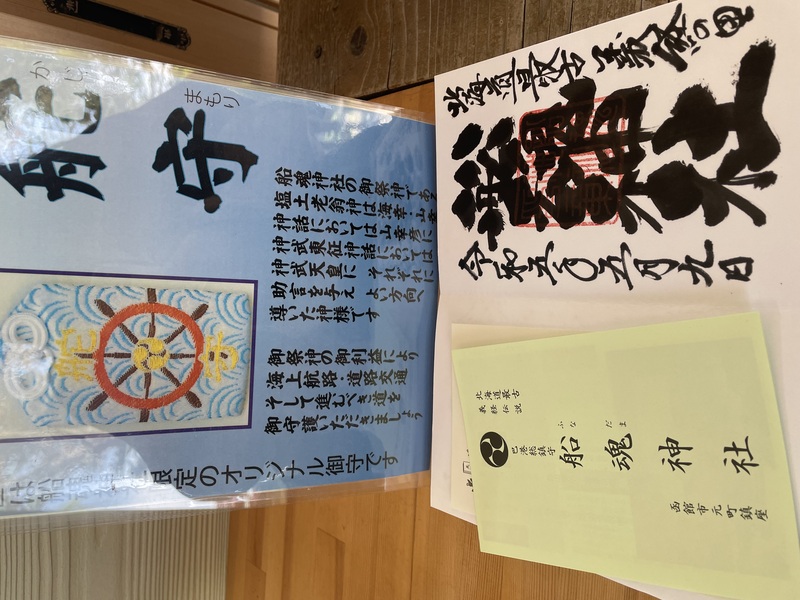 かじ
まもり
舵守
船魂神社の御祭神であ
塩土老翁神は海幸・山幸
神話においては山幸彦に
神武東征神話においては
神武天皇に それぞれに
助言を与え よい方向へ
導いた神様です
御祭神の御利益により
海上航路・道路交通
そして進むべき道を
御守護いただきましょう
限定のオリジナル御守です
舵守
北海道最古 義経の里
船魂神社
令和五年五月九日
北海道最古
義経伝説
巴港総鎮守
ふなだま
船魂神社
函館市元町鎮座